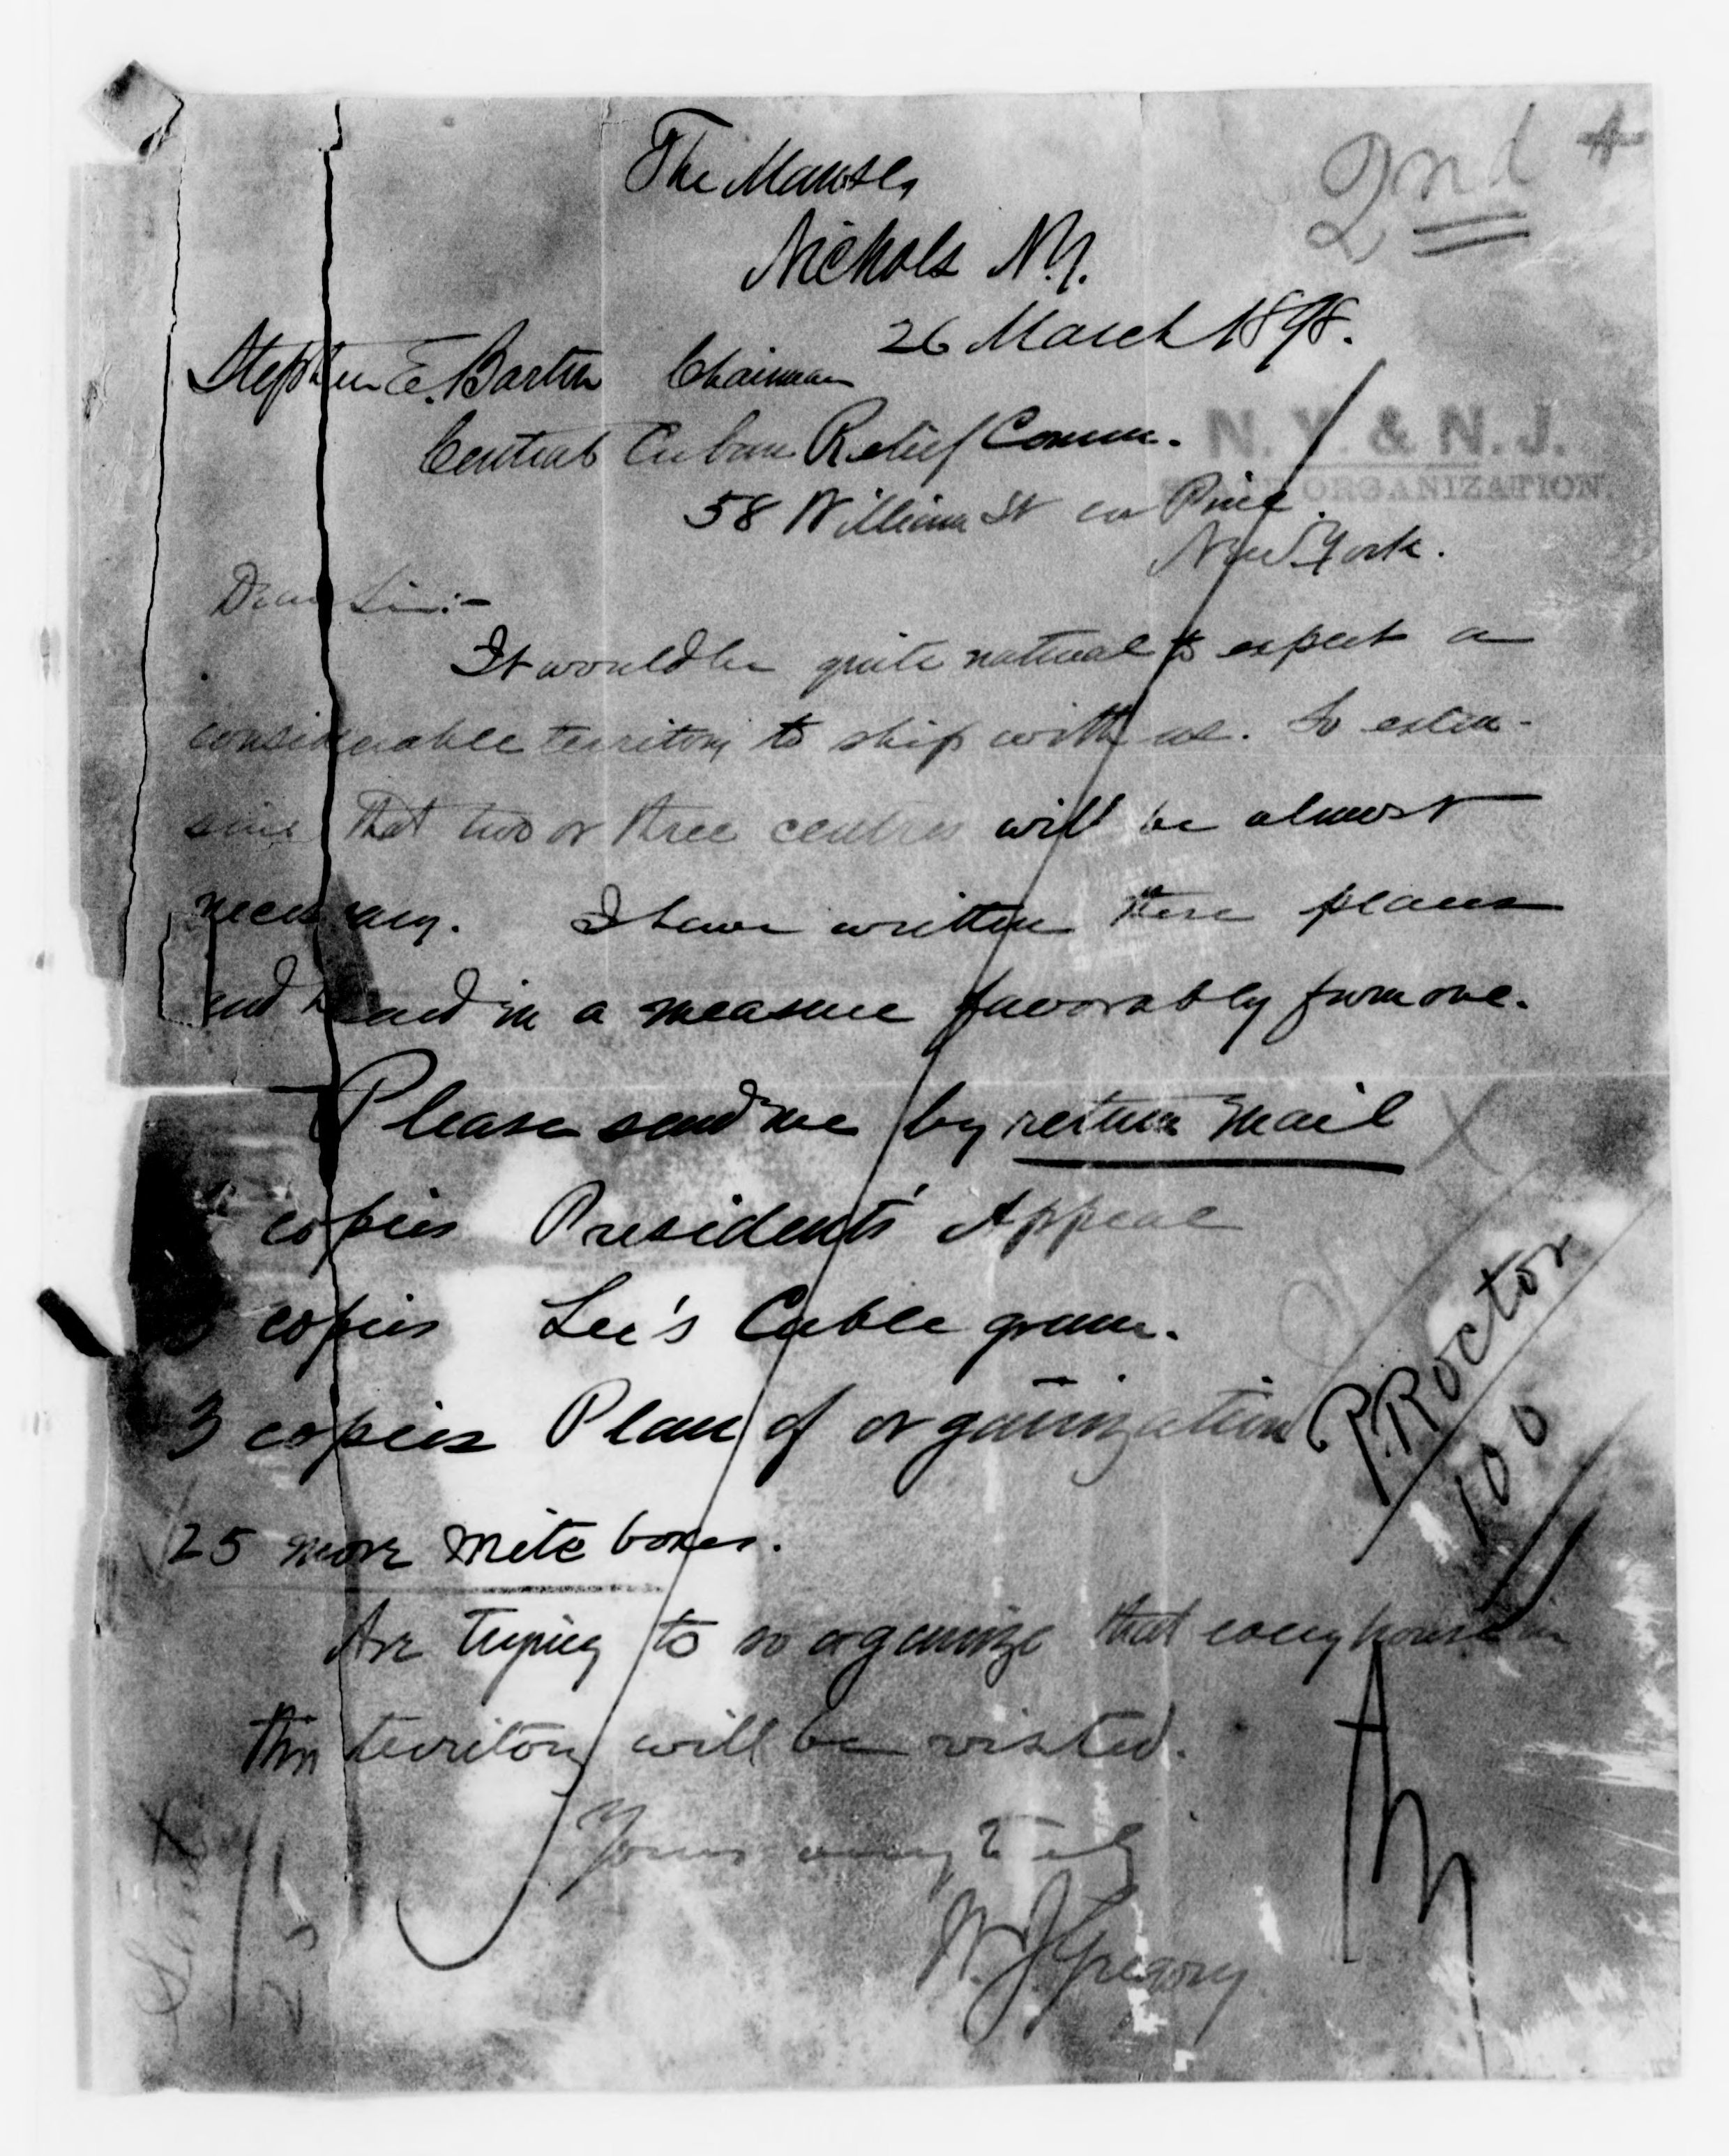 2nd
The Manse,
Nichols N.Y.
26 March 1898.
Stephen E. Barton Chairman
Central Cuban Relief Comm.
N.Y. & N.J.
ORGANIZATION
58 William St cor Pine
New York.
Dear Sir:-
It would be quite natural to expect a
considerable territory to ship with us. So exten-
sive that two or three centres will be almost
necessary. I have written three places
and heard in a measure favorably from one.
Please send me by return mail
copies President's Appeal
copies Lee's Cable gram.
3 copies Plan of organization
25 more mite boxes.
Are trying to so organize that every house in
this territory will be visited.
Yours very truly
W. J. Gregory
Proctor
100
Sent
25